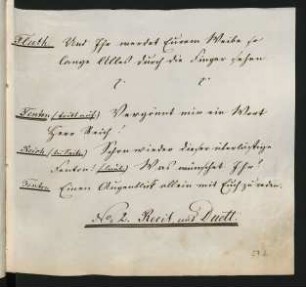 Fluth. Und Ihr werdet Eurem Weibe so
lange Alles durch die Finger sehen
Fenton (tritt auf) Vergönnt mir ein Wort
Herr Reich!
Reich (bei Seite) Schon wieder dieser überlästige
Fenton! (laut) Was wünschet Ihr?
Fenton. Einen Augenblick allein mit Euch zu reden.
No 2. Recit. und Duett.